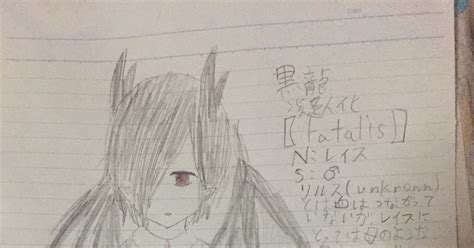 黒龍
擬人化
【Fatalis】
N:レイス
S:♂
リルス(unknown)
とは血はつながって
いないがレイスに
とっては母のような